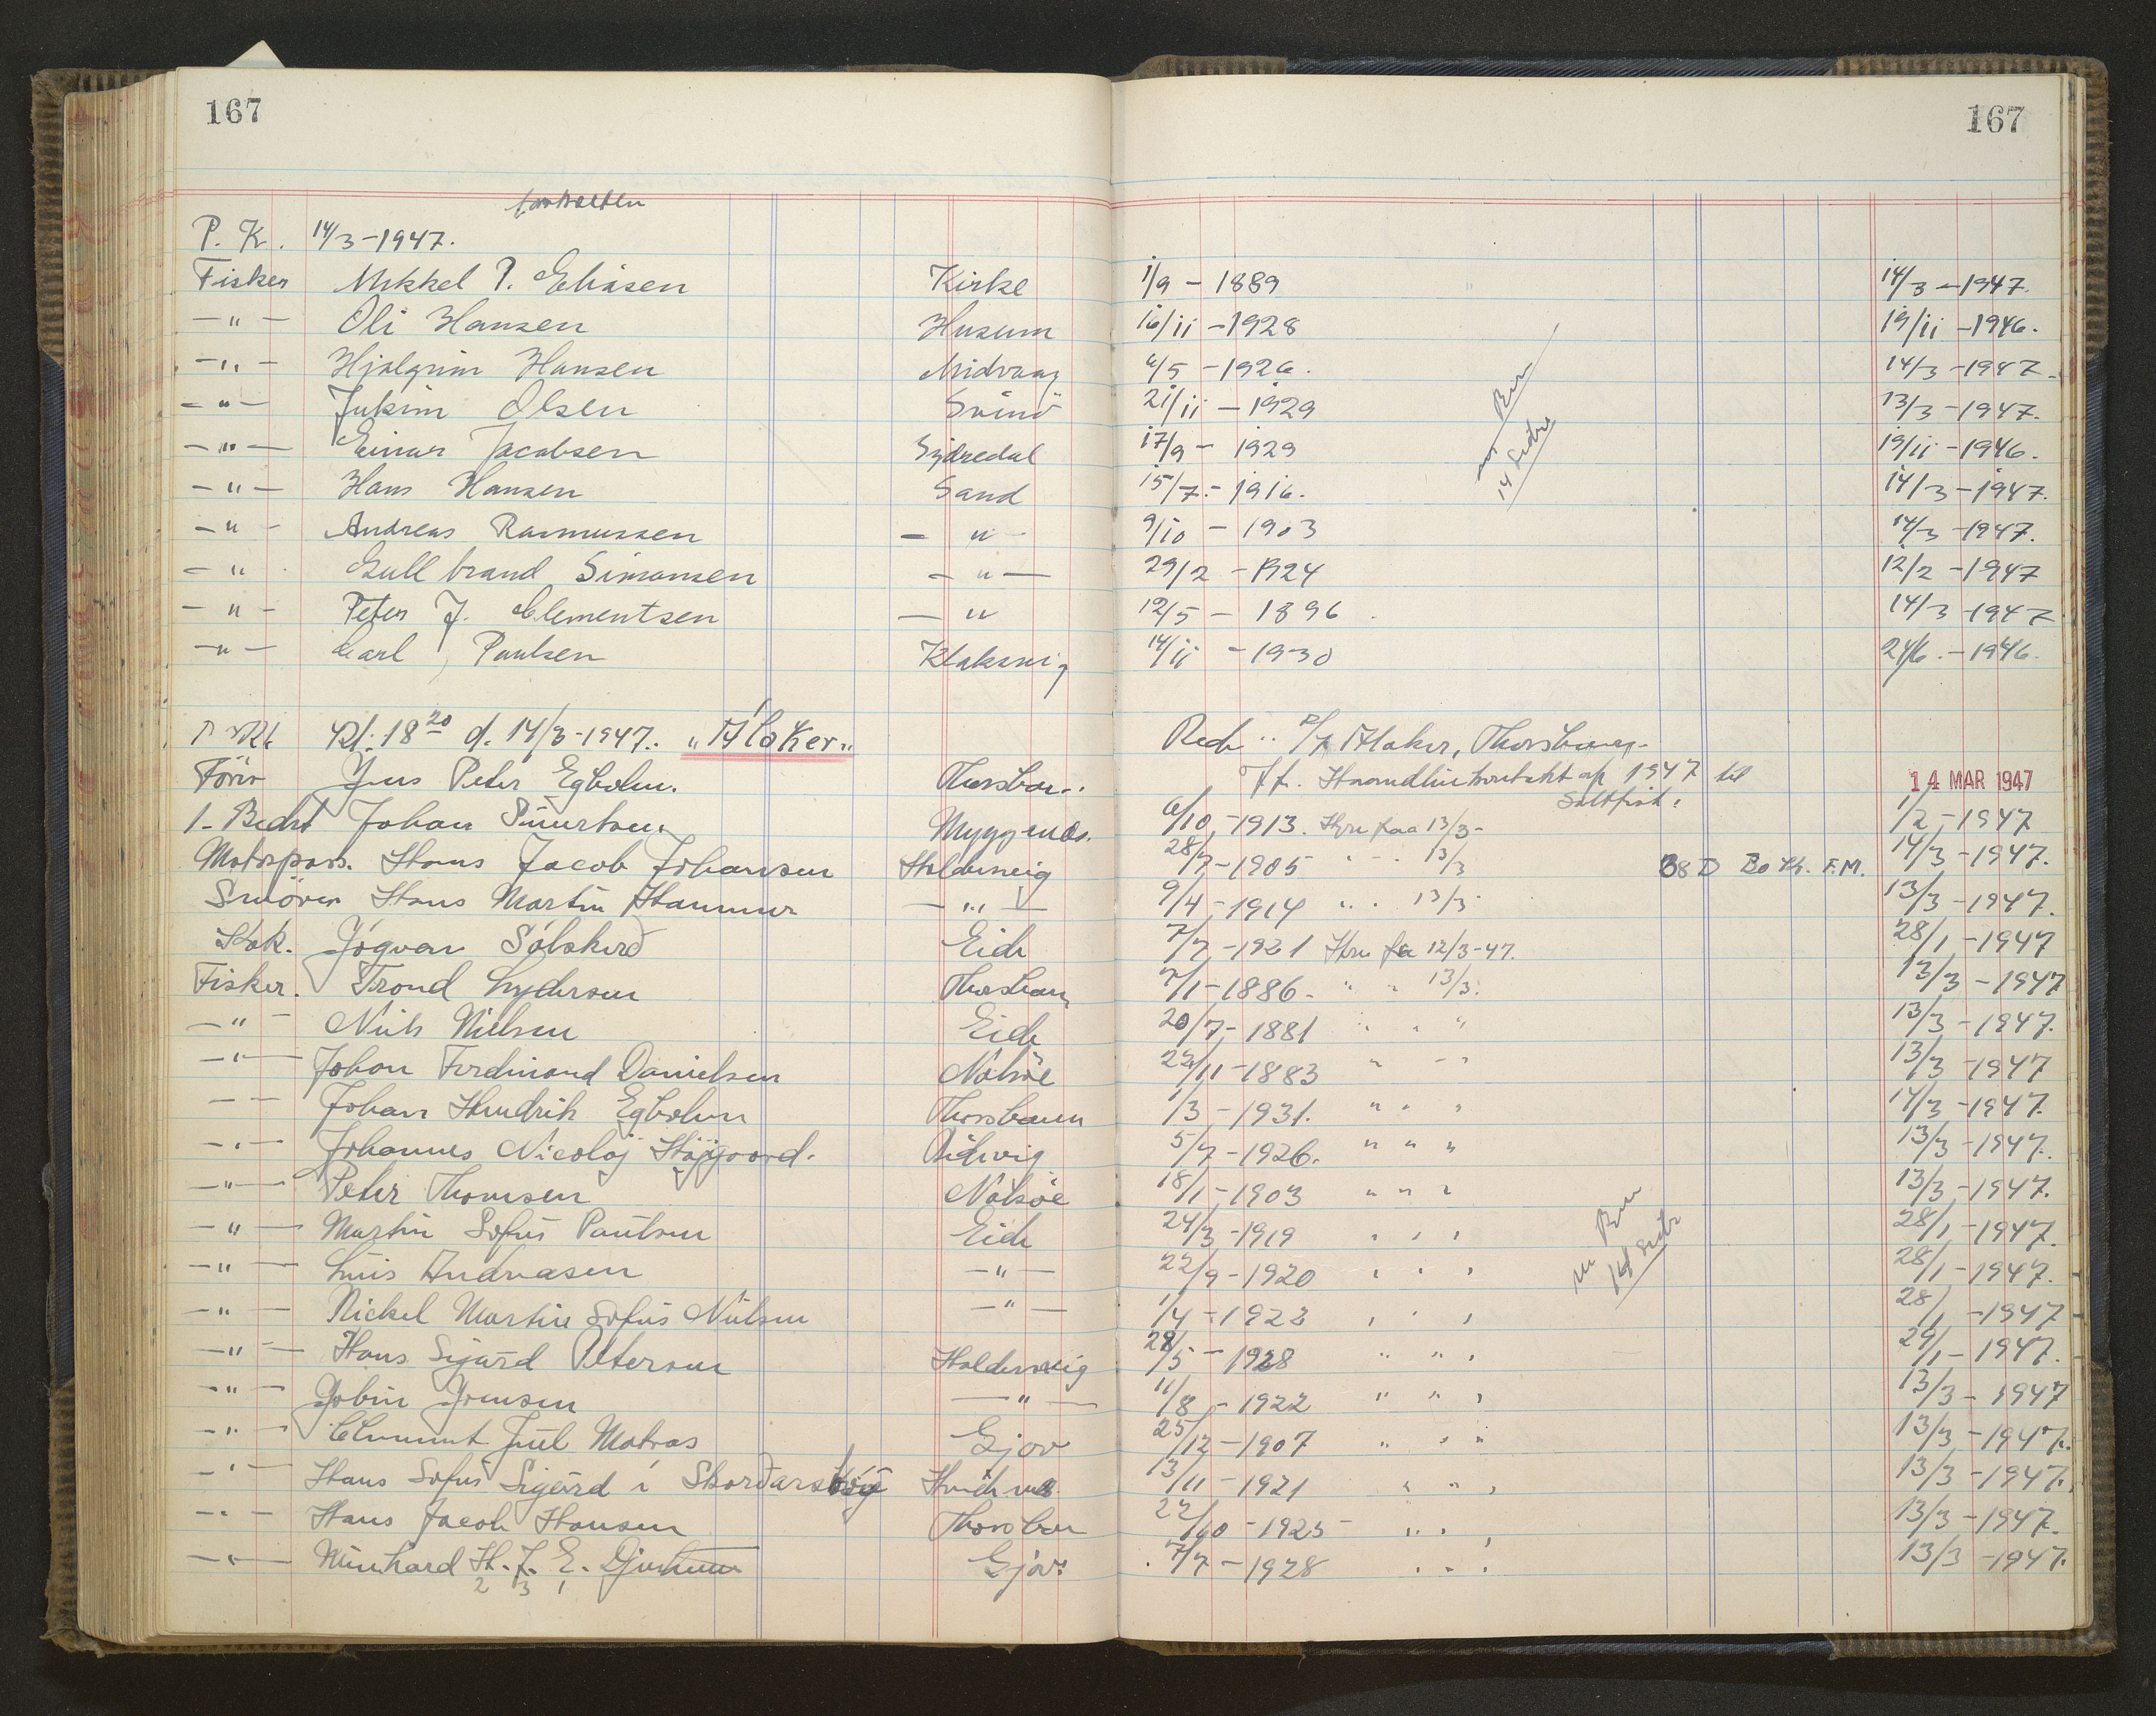 167 167
fortsætten
P. K. 14/3-1947.
Fisker Mikkel P. Eliasen Kirke 1/9 - 1889 14/3 - 1947.
- " - Oli Hansen Husum 16/11 - 1928 19/11 - 1946.
- " - Hjalgrim Hansen Midvaag 6/5 - 1926. 14/3 - 1947.
- " - Jukim Olsen Svinö 21/11 - 1929 13/3 - 1947.
- " - Einar Jacobsen Sydredal 17/9 - 1929 19/11 - 1946.
- " - Hans Hansen Sand 15/7 - 1916. 14/3 - 1947.
- " - Andreas Rasmussen - " - 9/10 - 1903 14/3 - 1947.
- " - Gullbrand Simonsen - " - 29/2 - 1924 12/2 - 1947
- " - Peter J. Clementsen - " 12/5 - 1896. 14/3 - 1947
- " - Carl Poulsen Klaksvig 14/11 - 1930 24/6. - 1946.
Kl. 18 20 d. 14/3-1947. "Hlaker" Rede.. Hlaker, Thorshavn.
Förer Jens Peter Egholm. Thorshav.. 1947 til 14 MAR 1947
Saltfisk.
1. Bedst Johan Simertsen Myggenæs. 6/10 - 1913. Hyre paa 13/3 - 1/2 - 1947
Motorpass. Hans Jacob Johansen Haldersvig 28/7 - 1905 " - 13/3 B8D Bo Kr. F.M. 14/3 - 1947.
Smörer Hans Martin Hammer - " - 9/4 - 1914 " . 13/3 13/3 - 1947.
Kok. Jógvan Sólskerð Eide 7/7 - 1921 Hyre fra 12/3-47. 28/1 - 1947
Fisker. Trond Lydersen Thorshavn 7/1 - 1886. " " 13/3. 13/3 - 1947
- " - Niels Nielsen Eide 20/7 - 1881 " " " 13/3 - 1947.
- " - Johan Ferdinand Danielsen Nolsöe 22/11 - 1883 " - " 13/3 - 1947
- - Johan Hendrik Egholm Thorshavn 1/3 - 1931. " " " 14/3 - 1947.
- " - Johannes Nicolaj Höjgaard. 5/7 - 1926. " " " 13/3 - 1947.
- " - Peter Thomsen Nolsöe 18/1 - 1903 " " " 13/3 - 1947.
- " - Martin Sofus Paulsen Eide 24/3 - 1919 " " " 28/1 - 1947.
- " - Luis Andreasen - " - 22/9 - 1920 " " " 28/1 - 1947.
- " - Nickel Martin Sofus Nielsen - " - 1/4 - 1922 " " 28/1 - 1947
- " - Hans Sigurd Petersen Haldersvig 28/5 - 1928 " " " 29/1 - 1947.
- " - Jobin Joensen - " - 11/8 - 1922 " " " 13/3 - 1947
- " - Clement Juul Matras Gjov 25/12 - 1907 " " " 13/3 - 1947.
- " - Hans Sofus Sigurd í Skorðarskóg 13/11 - 1921 " " " 13/3 - 1947.
- " - Hans Jacob Hansen Thorshavn 22/10 - 1925 - " " " 13/3 - 1947.
- " - Meinhard H. J. E. Djurhuus Gjov. 7/7 - 1928 " " " 13/3 - 1947.
2 3 1